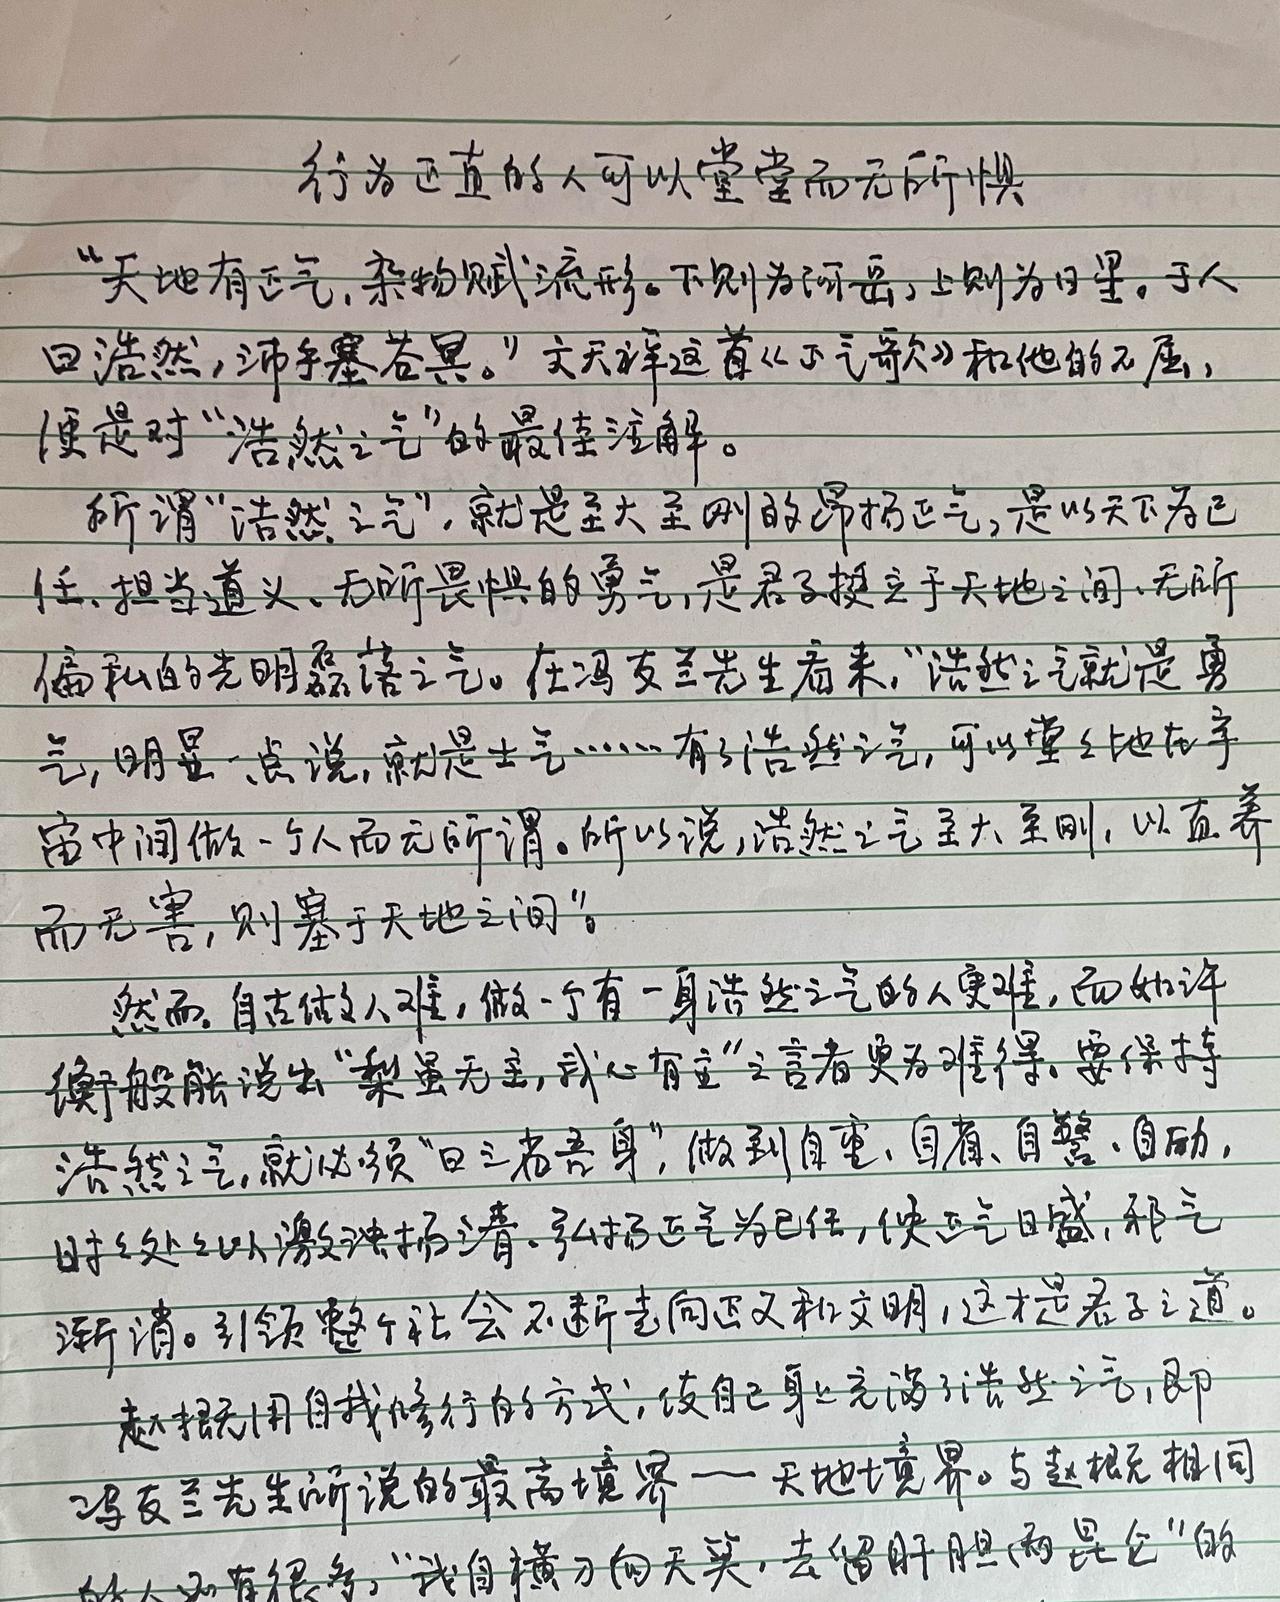 行为正直的人可以堂堂而无所惧
“天地有正气,杂物赋流形。下则为河岳,上则为日星。于人
曰浩然,沛乎塞苍冥。”文天祥这首《正气歌》和他的不屈,
便是对“浩然之气”的最佳注解。
所谓“浩然之气”,就是至大至刚的昂扬正气,是以天下为己
任、担当道义、无所畏惧的勇气,是君子挺立于天地之间、无所
偏私的光明磊落之气。在冯友兰先生看来,“浩然之气就是勇
气,明显一点说,就是士气……有了浩然之气,可以堂々地在宇
宙中间做一个人而无所谓。所以说,浩然之气至大至刚,以直养
而无害,则塞于天地之间”。
然而,自古做人难,做一个有一身浩然之气的人更难,而如许
衡般能说出“梨虽无主,我心有主”之言者更为难得。要保持
浩然之气,就必须“日三省吾身”,做到自重、自省、自警、自励,
时々处々以激浊扬清、弘扬正气为己任,使正气日盛,邪气
渐消。引领整个社会不断走向正义和文明,这才是君子之道。
赵概无用自我修行的方式,使自己身上充满了浩然之气,即
冯友兰先生所说的最高境界——天地境界。与赵概无相同
的人还有很多,“我自横刀向天笑,去留肝胆两昆仑”的